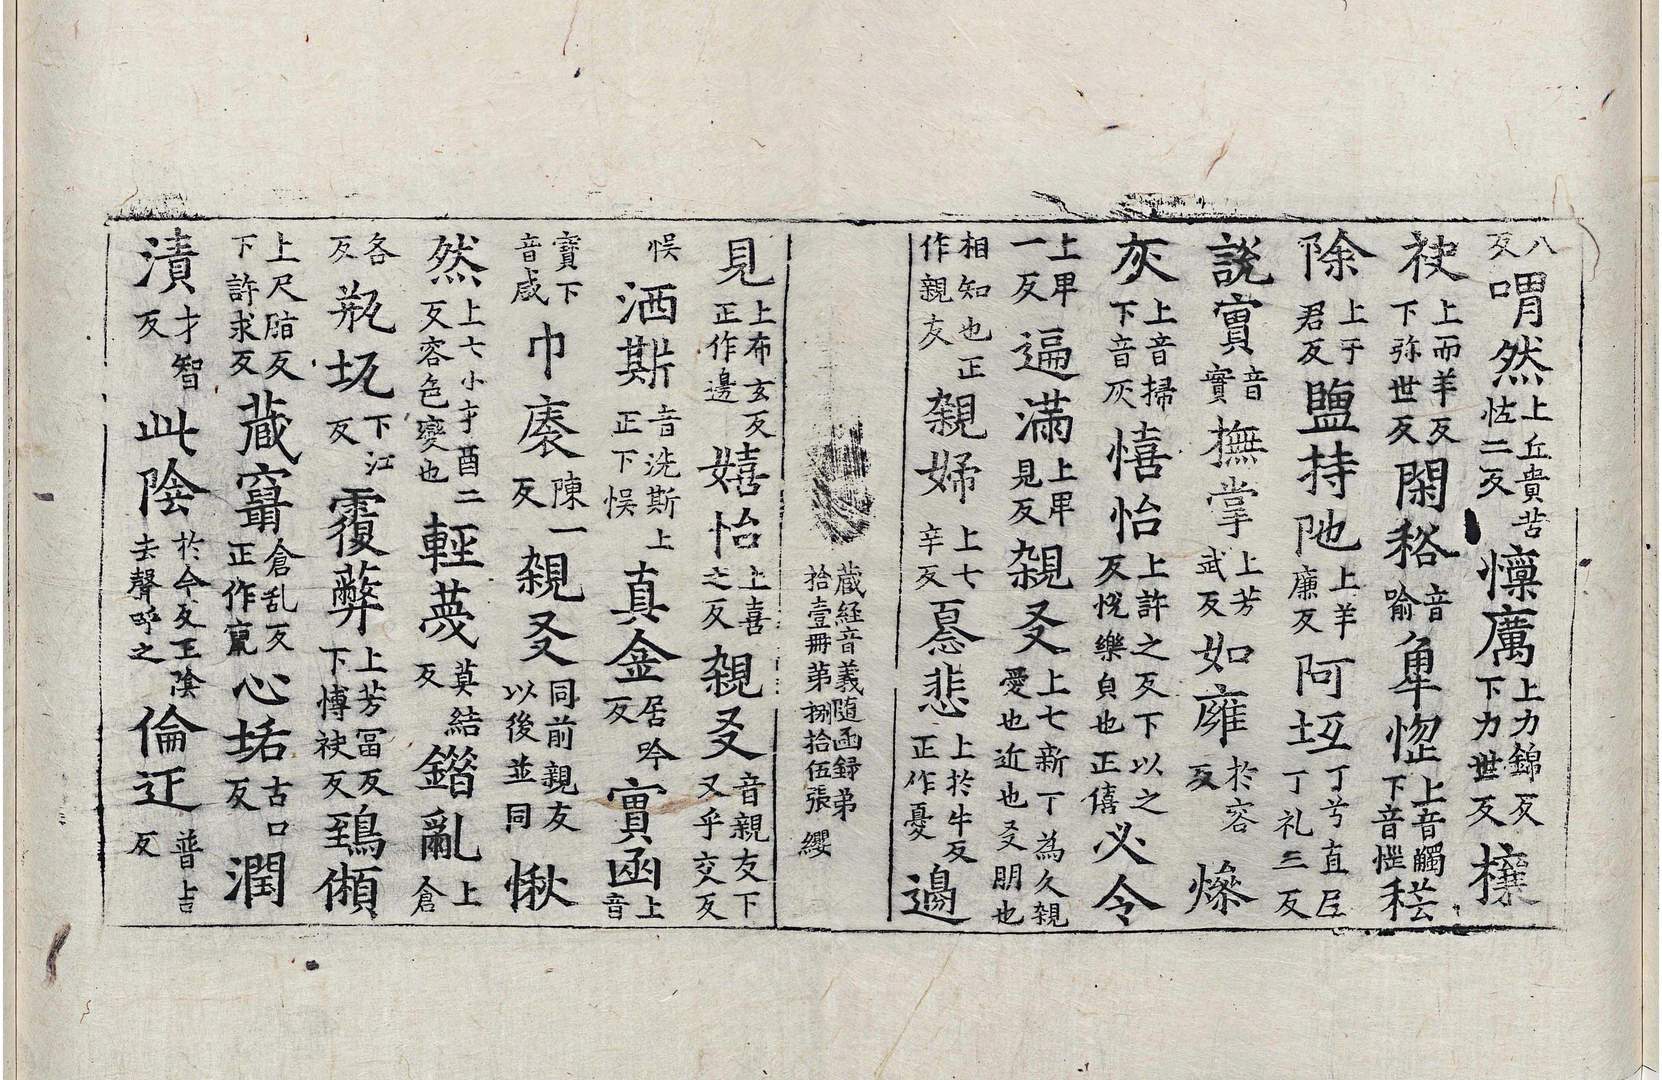 八反喟然上丘貴苦恠二反懔厲上力錦反下力世反攘
袂上而羊反下弥世反閑䅉音喻䧹惚上音觸下音惟䅉
除上于君反鹽持阤上羊廉反阿坘丁兮直尼丁礼三反
說實音實撫掌上芳武反如雍於容反燦
灰上音掃下音灰憘怡上許之反下以之反悅樂皃也正僖必令
上卑一反逼滿上卑見反親㕛上七新丁為久親愛也近也㕛朋也
相知也正作親友親婦上七辛反惪悲上於牛反正作憂邊
藏経音義随函録苐拾壹冊苐捌拾伍張 纓
見上布玄反正作邊嬉怡上喜之反親㕛音親友下又乎交反
悮洒斯音洗斯上正下悮真金居吟反實函上音
寶下音咸巾袠陳一反親㕛同前親友以後並同愀
然上七小才酉二反容色變也輕蔑莫結反鐕亂上倉
各反瓶㧈下江反覆蔽上芳冨反下博袂反鵄傾
上尺脂反下許求反蔵竄倉乱反正作竄心垢古口反潤
漬才智反此陰於今反王陰去聲呼之倫𨒌普吉反